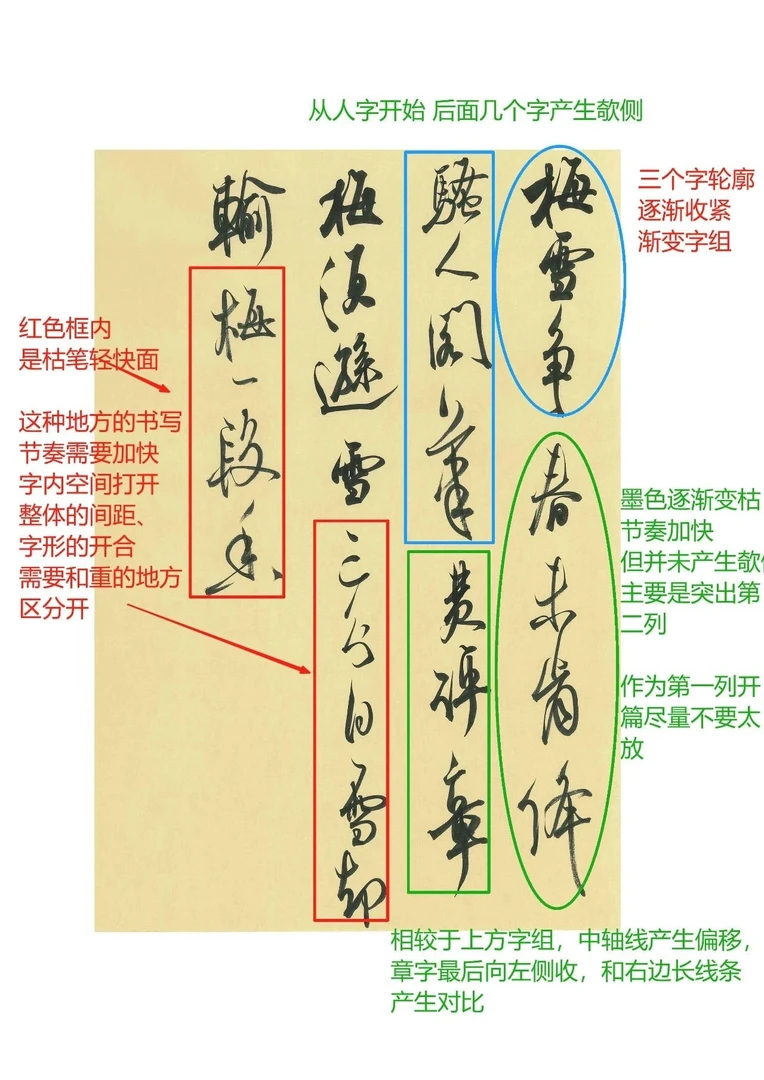 从人字开始 后面几个字产生欹侧
三个字轮廓
逐渐收紧
渐变字组
梅雪争春未肯降
騷人閣筆費評章
梅須遜雪三分白雪却
輸梅一段香
红色框内
是枯笔轻快面
这种地方的书写
节奏需要加快
字内空间打开
整体的间距、
字形的开合
需要和重的地方
区分开
墨色逐渐变枯
节奏加快
但并未产生欹
主要是突出第
二列
作为第一列开
篇尽量不要太
放
相较于上方字组，中轴线产生偏移，
章字最后向左侧收，和右边长线条
产生对比